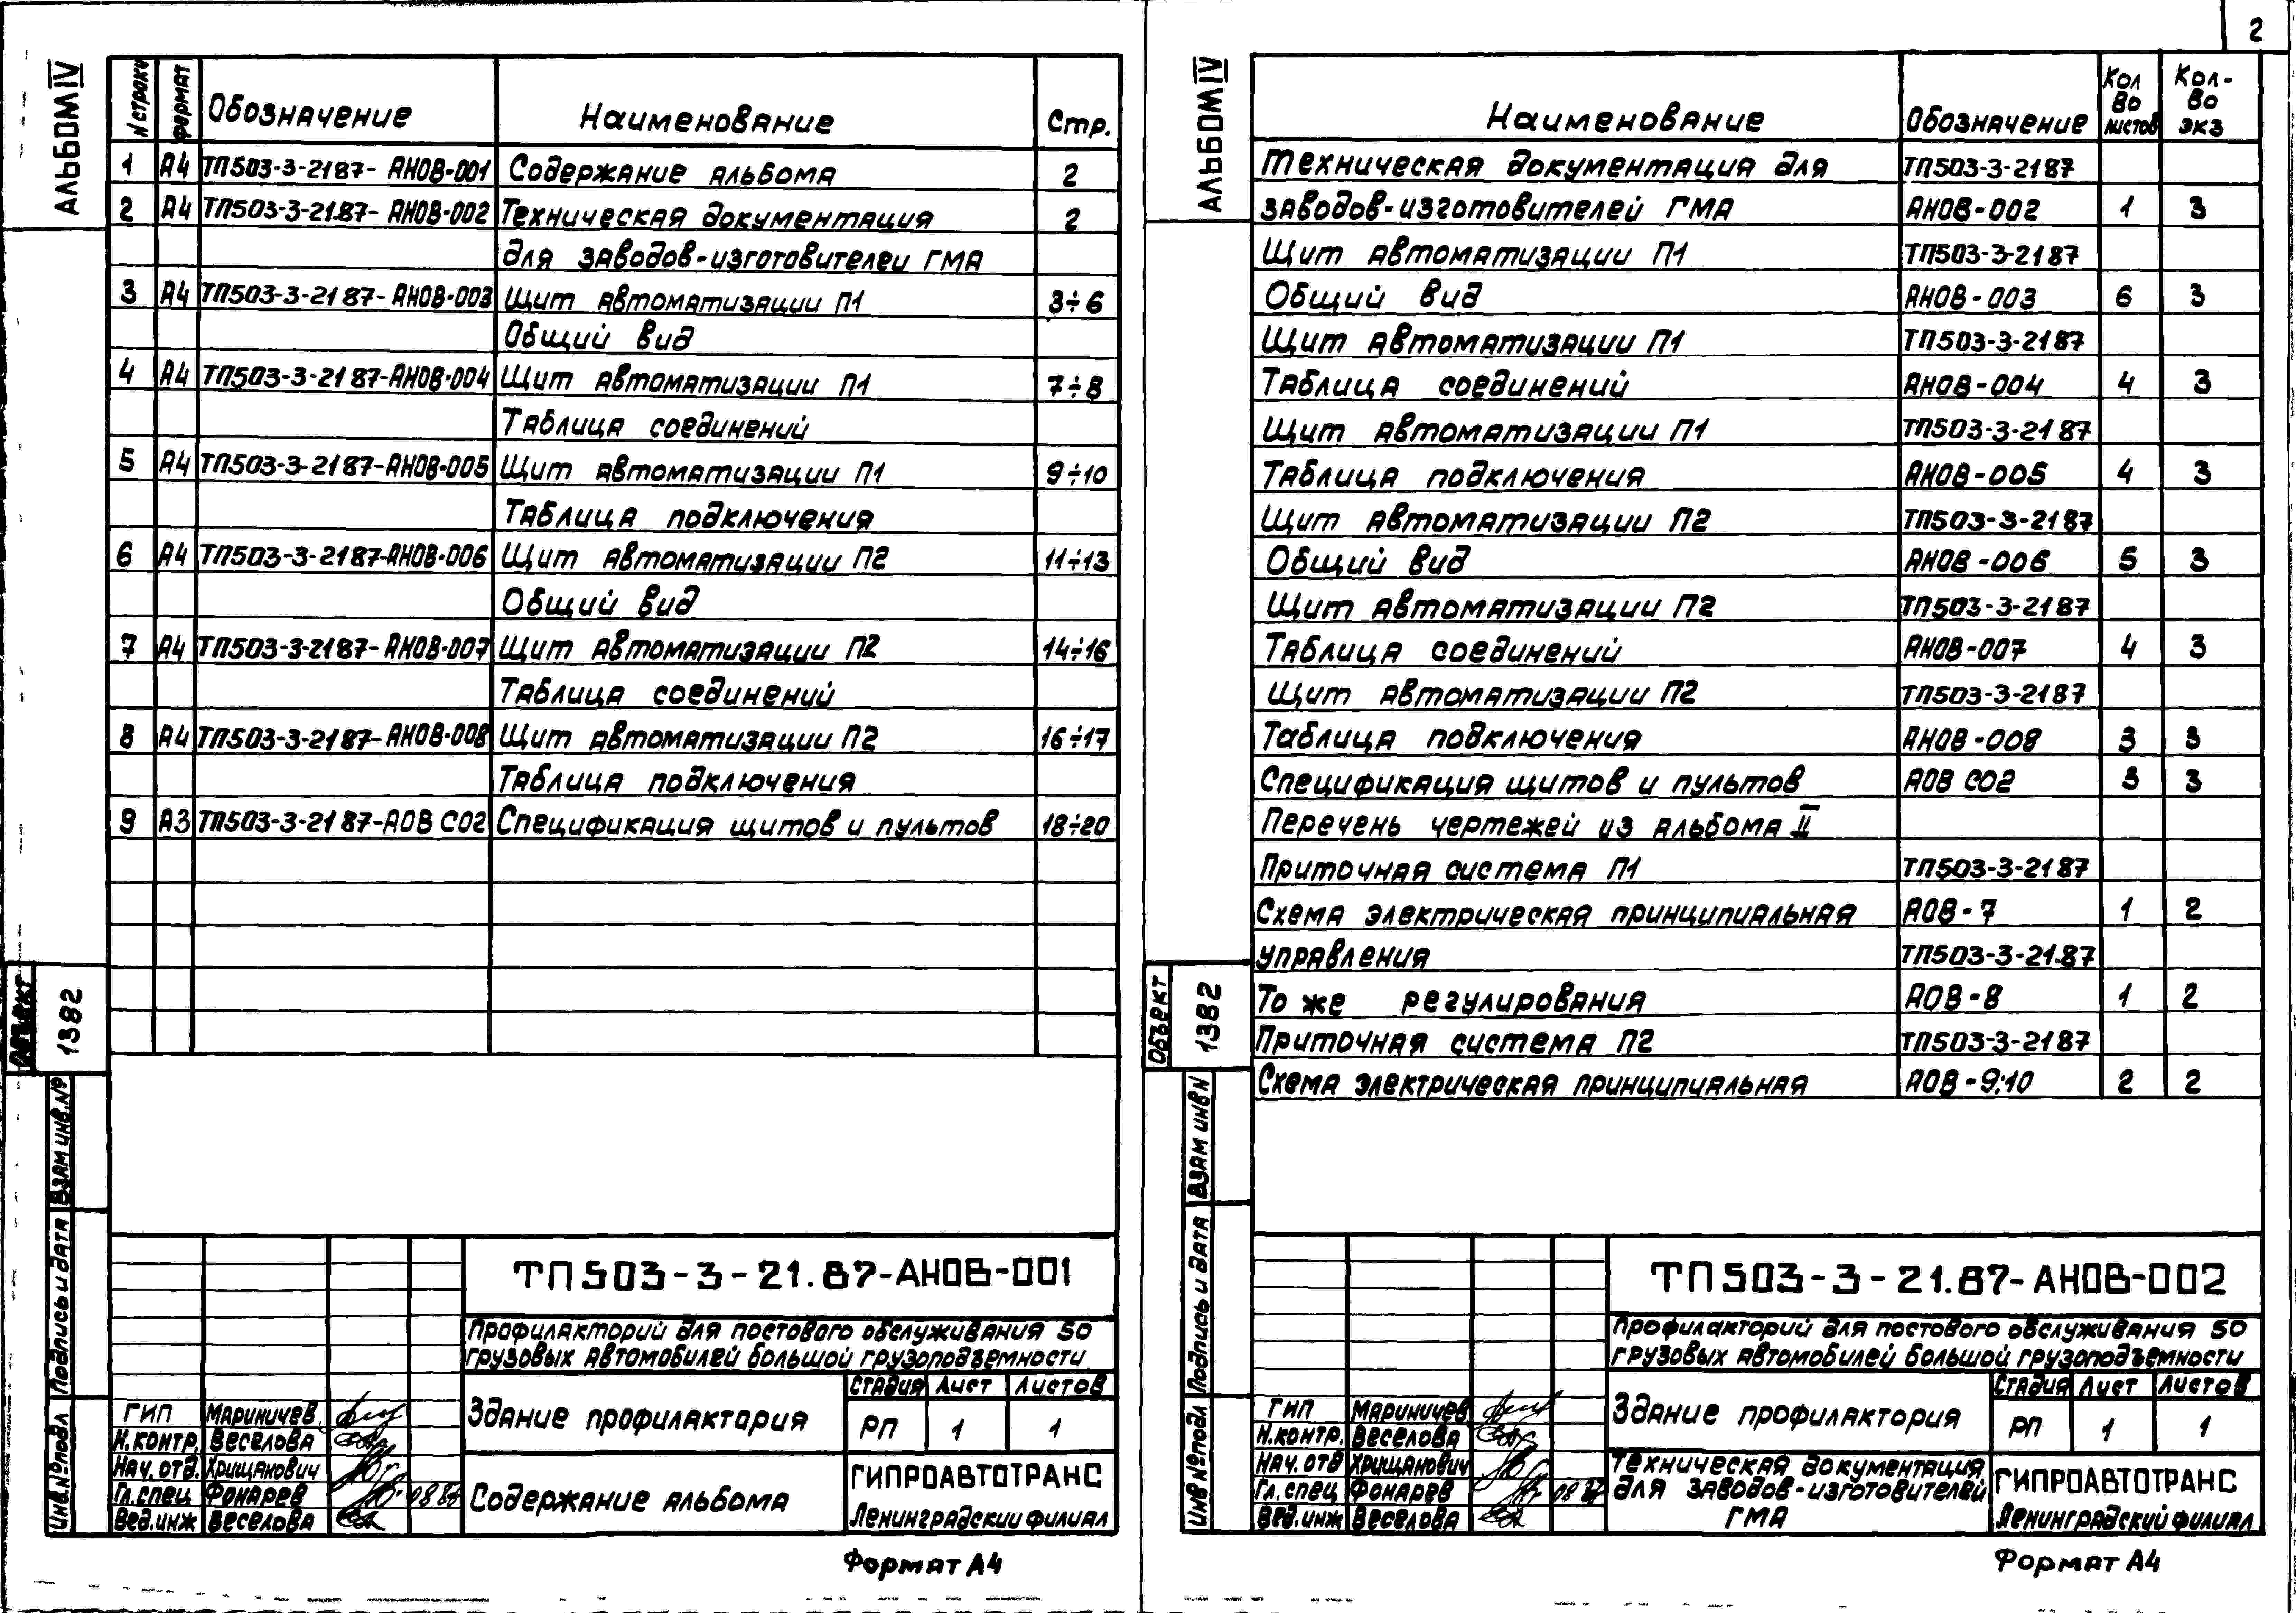 2
АЛЬБОМ IV
N строки Формат Обозначение Наименование Стр.
1 А4 ТП503-3-21 87- АНОВ-001 Содержание альбома 2
2 А4 ТП503-3-21.87- АНОВ-002 Техническая документация 2
для заводов-изготовителей ГМА
3 А4 ТП503-3-21 87- АНОВ-003 Щит автоматизации П1 3÷6
Общий вид
4 А4 ТП503-3-21 87-АНОВ-004 Щит автоматизации П1 7÷8
Таблица соединений
5 А4 ТП503-3-21 87-АНОВ-005 Щит автоматизации П1 9÷10
Таблица подключения
6 А4 ТП503-3-21 87-АНОВ-006 Щит автоматизации П2 11÷13
Общий вид
7 А4 ТП503-3-21 87- АНОВ-007 Щит автоматизации П2 14÷16
Таблица соединений
8 А4 ТП503-3-21 87-АНОВ-008 Щит автоматизации П2 16÷17
Таблица подключения
9 А3 ТП503-3-21 87-АОВ СО2 Спецификация щитов и пультов 18÷20
Объект 1382
Взам инв.№
Подпись и дата
Инв.№ подл
ТП 503-3-21.87-АНОВ-001
Профилакторий для постового обслуживания 50
грузовых автомобилей большой грузоподъемности
Здание профилактория
Стадия Лист Листов
РП 1 1
ГИП Мариничев
Н.контр. Веселова
Нач. отд. Хрищанович
Гл.спец Фонарев
Вед.инж Веселова
Содержание альбома
ГИПРОАВТОТРАНС
Ленинградский филиал
Формат А4
АЛЬБОМ IV
Наименование Обозначение Кол во листов Кол-во экз
Техническая документация для ТП503-3-21 87
заводов-изготовителей ГМА АНОВ-002 1 3
Щит автоматизации П1 ТП503-3-21 87
Общий вид АНОВ-003 6 3
Щит автоматизации П1 ТП503-3-21 87
Таблица соединений АНОВ-004 4 3
Щит автоматизации П1 ТП503-3-21 87
Таблица подключения АНОВ-005 4 3
Щит автоматизации П2 ТП503-3-21 87
Общий вид АНОВ-006 5 3
Щит автоматизации П2 ТП503-3-21 87
Таблица соединений АНОВ-007 4 3
Щит автоматизации П2 ТП503-3-21 87
Таблица подключения АНОВ-008 3 3
Спецификация щитов и пультов АОВ СО2 3 3
Перечень чертежей из альбома II
Приточная система П1 ТП503-3-21 87
Схема электрическая принципиальная АОВ-7 1 2
управления ТП503-3-21.87
То же регулирования АОВ-8 1 2
Приточная система П2 ТП503-3-21 87
Схема электрическая принципиальная АОВ-9;10 2 2
Объект 1382
Взам инв N
Подпись и дата
Инв №подл
ТП 503-3-21.87-АНОВ-002
Профилакторий для постового обслуживания 50
грузовых автомобилей большой грузоподъемности
Здание профилактория
Стадия Лист Листов
РП 1 1
ГИП Мариничев
Н.контр. Веселова
Нач. отд Хрищанович
Гл. спец Фонарев
Вед.инж Веселова
Техническая документация
для заводов-изготовителей
ГМА
ГИПРОАВТОТРАНС
Ленинградский филиал
Формат А4